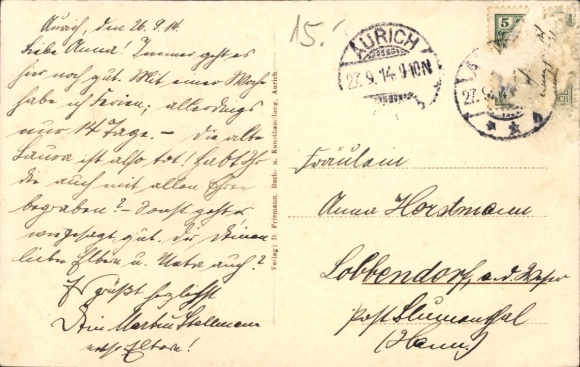 Aurich, den 26. 9. 14.
Liebe Anna! Immer geht es
hier noch gut. Mit einer Woche
habe ich Ferien; allerdings
nur 14 Tage. – Die alte
Laura ist also tot! Habt Ihr
die auch mit allen Ehren
begraben? – Sonst geht es
wie gesagt gut. Dir, Deinen
lieben Eltern u. auch?
Es grüßt herzlichst
Dein Martin Stellmann
Eltern!
Verlag: D. Friemann, Buch- u. Kunsthandlung, Aurich
15.-
AURICH
27.9.14. 9-10N
5
A
27.9.14
b
Fräulein
Anna Horstmann
Lobbendorf, a. d. Weser
Post Blumenthal
(Hann.)